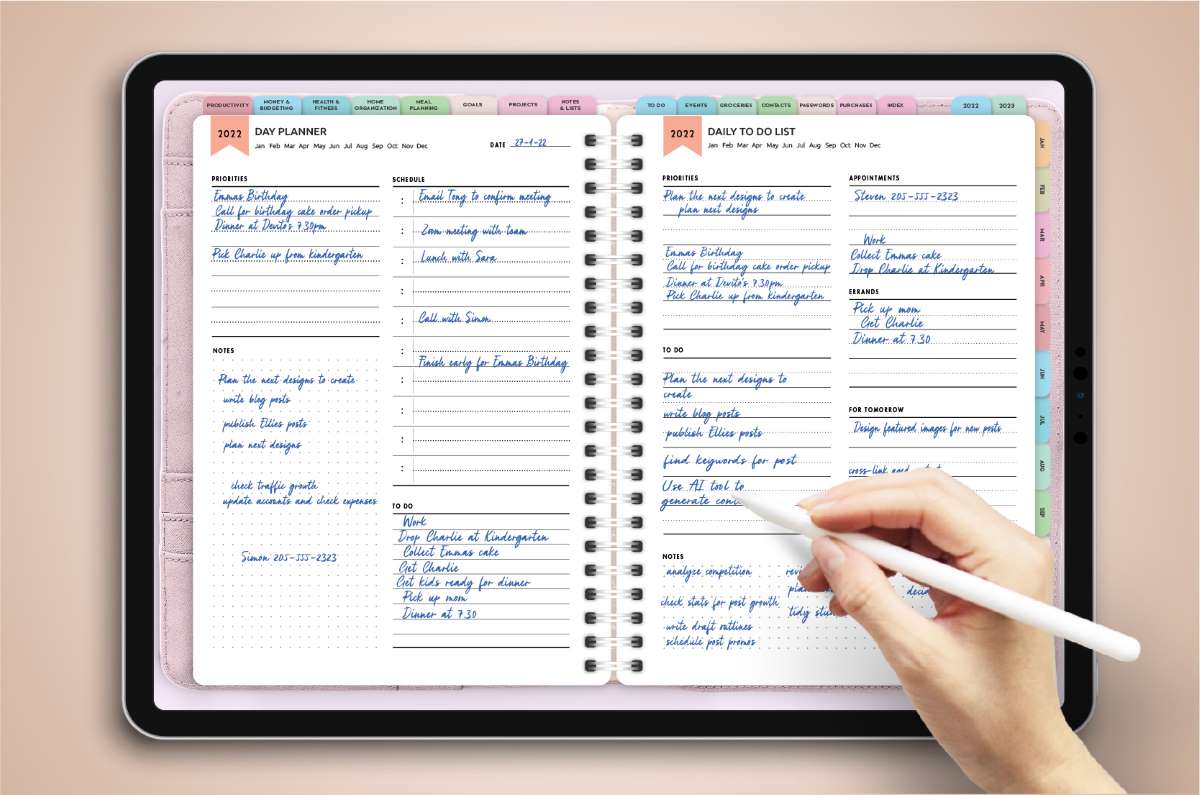 PRODUCTIVITY
MONEY &
BUDGETING
HEALTH &
FITNESS
HOME
ORGANIZATION
MEAL
PLANNING
GOALS
PROJECTS
NOTES
& LISTS
TO DO
EVENTS
GROCERIES
CONTACTS
PASSWORDS
PURCHASES
INDEX
2022
2023
2022
DAY PLANNER
Jan Feb Mar Apr May Jun Jul Aug Sep Oct Nov Dec
DATE 27-1-22
PRIORITIES
Emmas Birthday
Call for birthday cake order pickup
Dinner at Devito's 7.30pm
Pick Charlie up from kindergarten
NOTES
Plan the next designs to create
write blog posts
publish Ellies posts
plan next designs
check traffic growth
update accounts and check expenses
Simon 205-555-2323
SCHEDULE
: Email Tony to confirm meeting
: Zoom meeting with team
: Lunch with Sara
:
: Call with Simon
:
Finish early for Emmas Birthday
:
:
:
:
TO DO
Work
Drop Charlie at Kindergarten
Collect Emmas cake
Get Charlie
Get kids ready for dinner
Pick up mom
Dinner at 7.30
2022
DAILY TO DO LIST
Jan Feb Mar Apr May Jun Jul Aug Sep Oct Nov Dec
PRIORITIES
Plan the next designs to create
plan next designs
Emmas Birthday
Call for birthday cake order pickup
Dinner at Devito's 7.30pm
Pick Charlie up from kindergarten
TO DO
Plan the next designs to
create
write blog posts
publish Ellies posts
find keywords for post
Use AI tool to
generate
NOTES
analyze competition
check stats for post growth
write draft outlines
schedule post promos
tidy
APPOINTMENTS
Steven 205-555-2323
Work
Collect Emmas cake
Drop Charlie at Kindergarten
ERRANDS
Pick up mom
Get Charlie
Dinner at 7.30
FOR TOMORROW
Design featured images for new posts
cross-link
JAN
FEB
MAR
APR
MAY
JUN
JUL
AUG
SEP